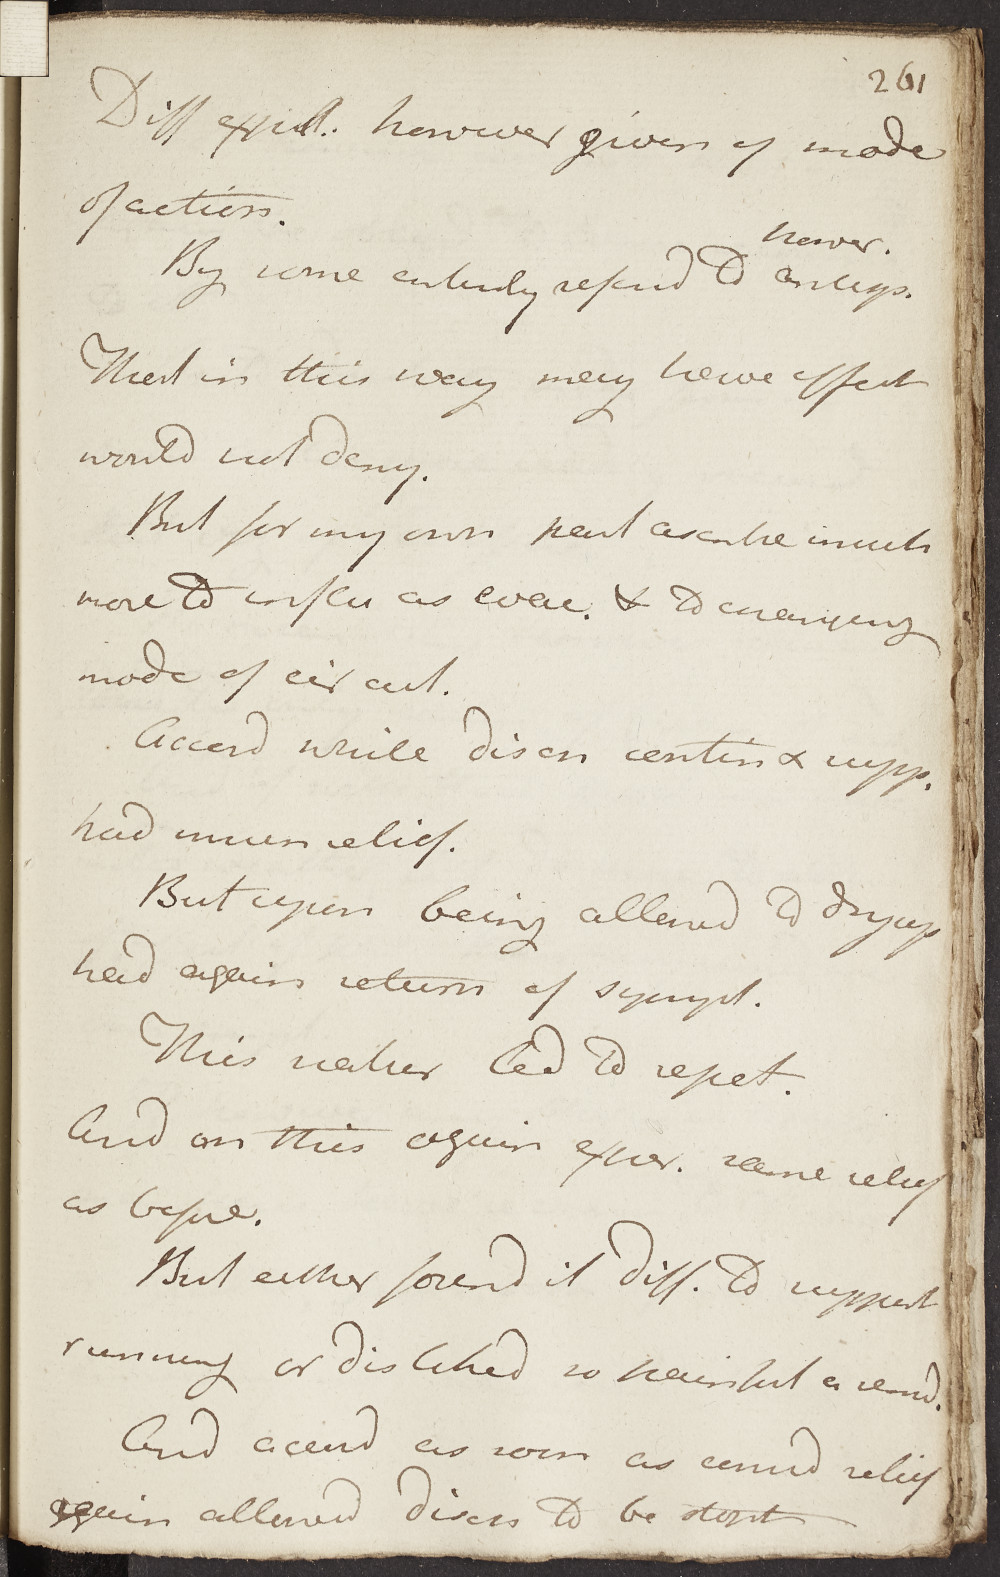 261
Diff expl. however given of mode
of action.
By some entirely referd to
That in this way may have effect
would not deny.
But for my own part ascribe much
more to as evac. & to changing
mode of circul.
Accord while disch contin & supp.
had much relief.
But upon being allowed to dry up
had again return of sympt.
This rather led to repet.
And on this again exper. same relief
as before.
But either found it diff. to support
running or disliked so painful a remd.
And accord as soon as relief
again allowed disch to be stopt